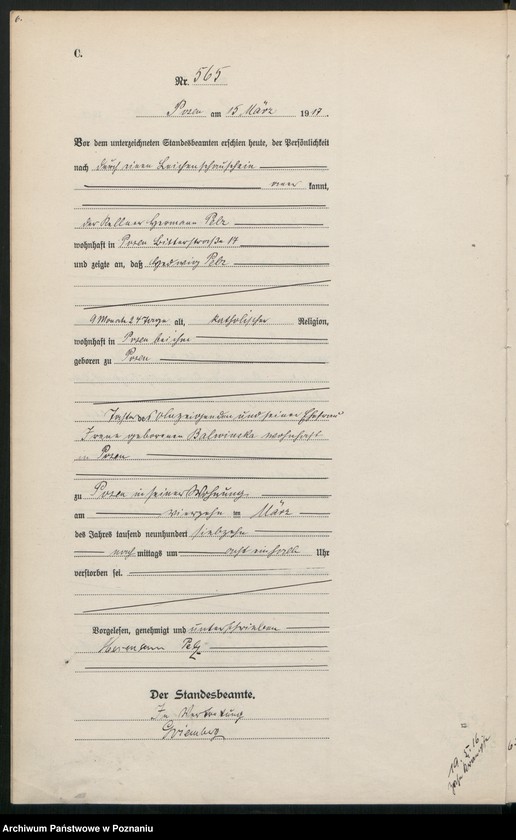 C.
Nr. 565
Posen am 15 März 1917.
Vor dem unterzeichneten Standesbeamten erschien heute, der Persönlichkeit
nach durch einen Leichenschauschein
aner kannt,
der Kellner Hermann Pelz
wohnhaft in Posen Bitterstraße 17
und zeigte an, daß Hedwig Pelz
9 Monate 24 Tage alt, katholischer Religion,
wohnhaft in Posen bei ihm
geboren zu Posen
Tochter des Anzeigenden und seiner Ehefrau
Irene geborenen wohnhaft
in Posen
zu Posen in seiner Wohnung
am vierzehn im März
des Jahres tausend neunhundert siebzehn
nach mittags um acht einhalb Uhr
verstorben sei.
Vorgelesen, genehmigt und unterschrieben
Hermann Pelz
Der Standesbeamte.
In Vertretung
Archiwum Państwowe w Poznaniu